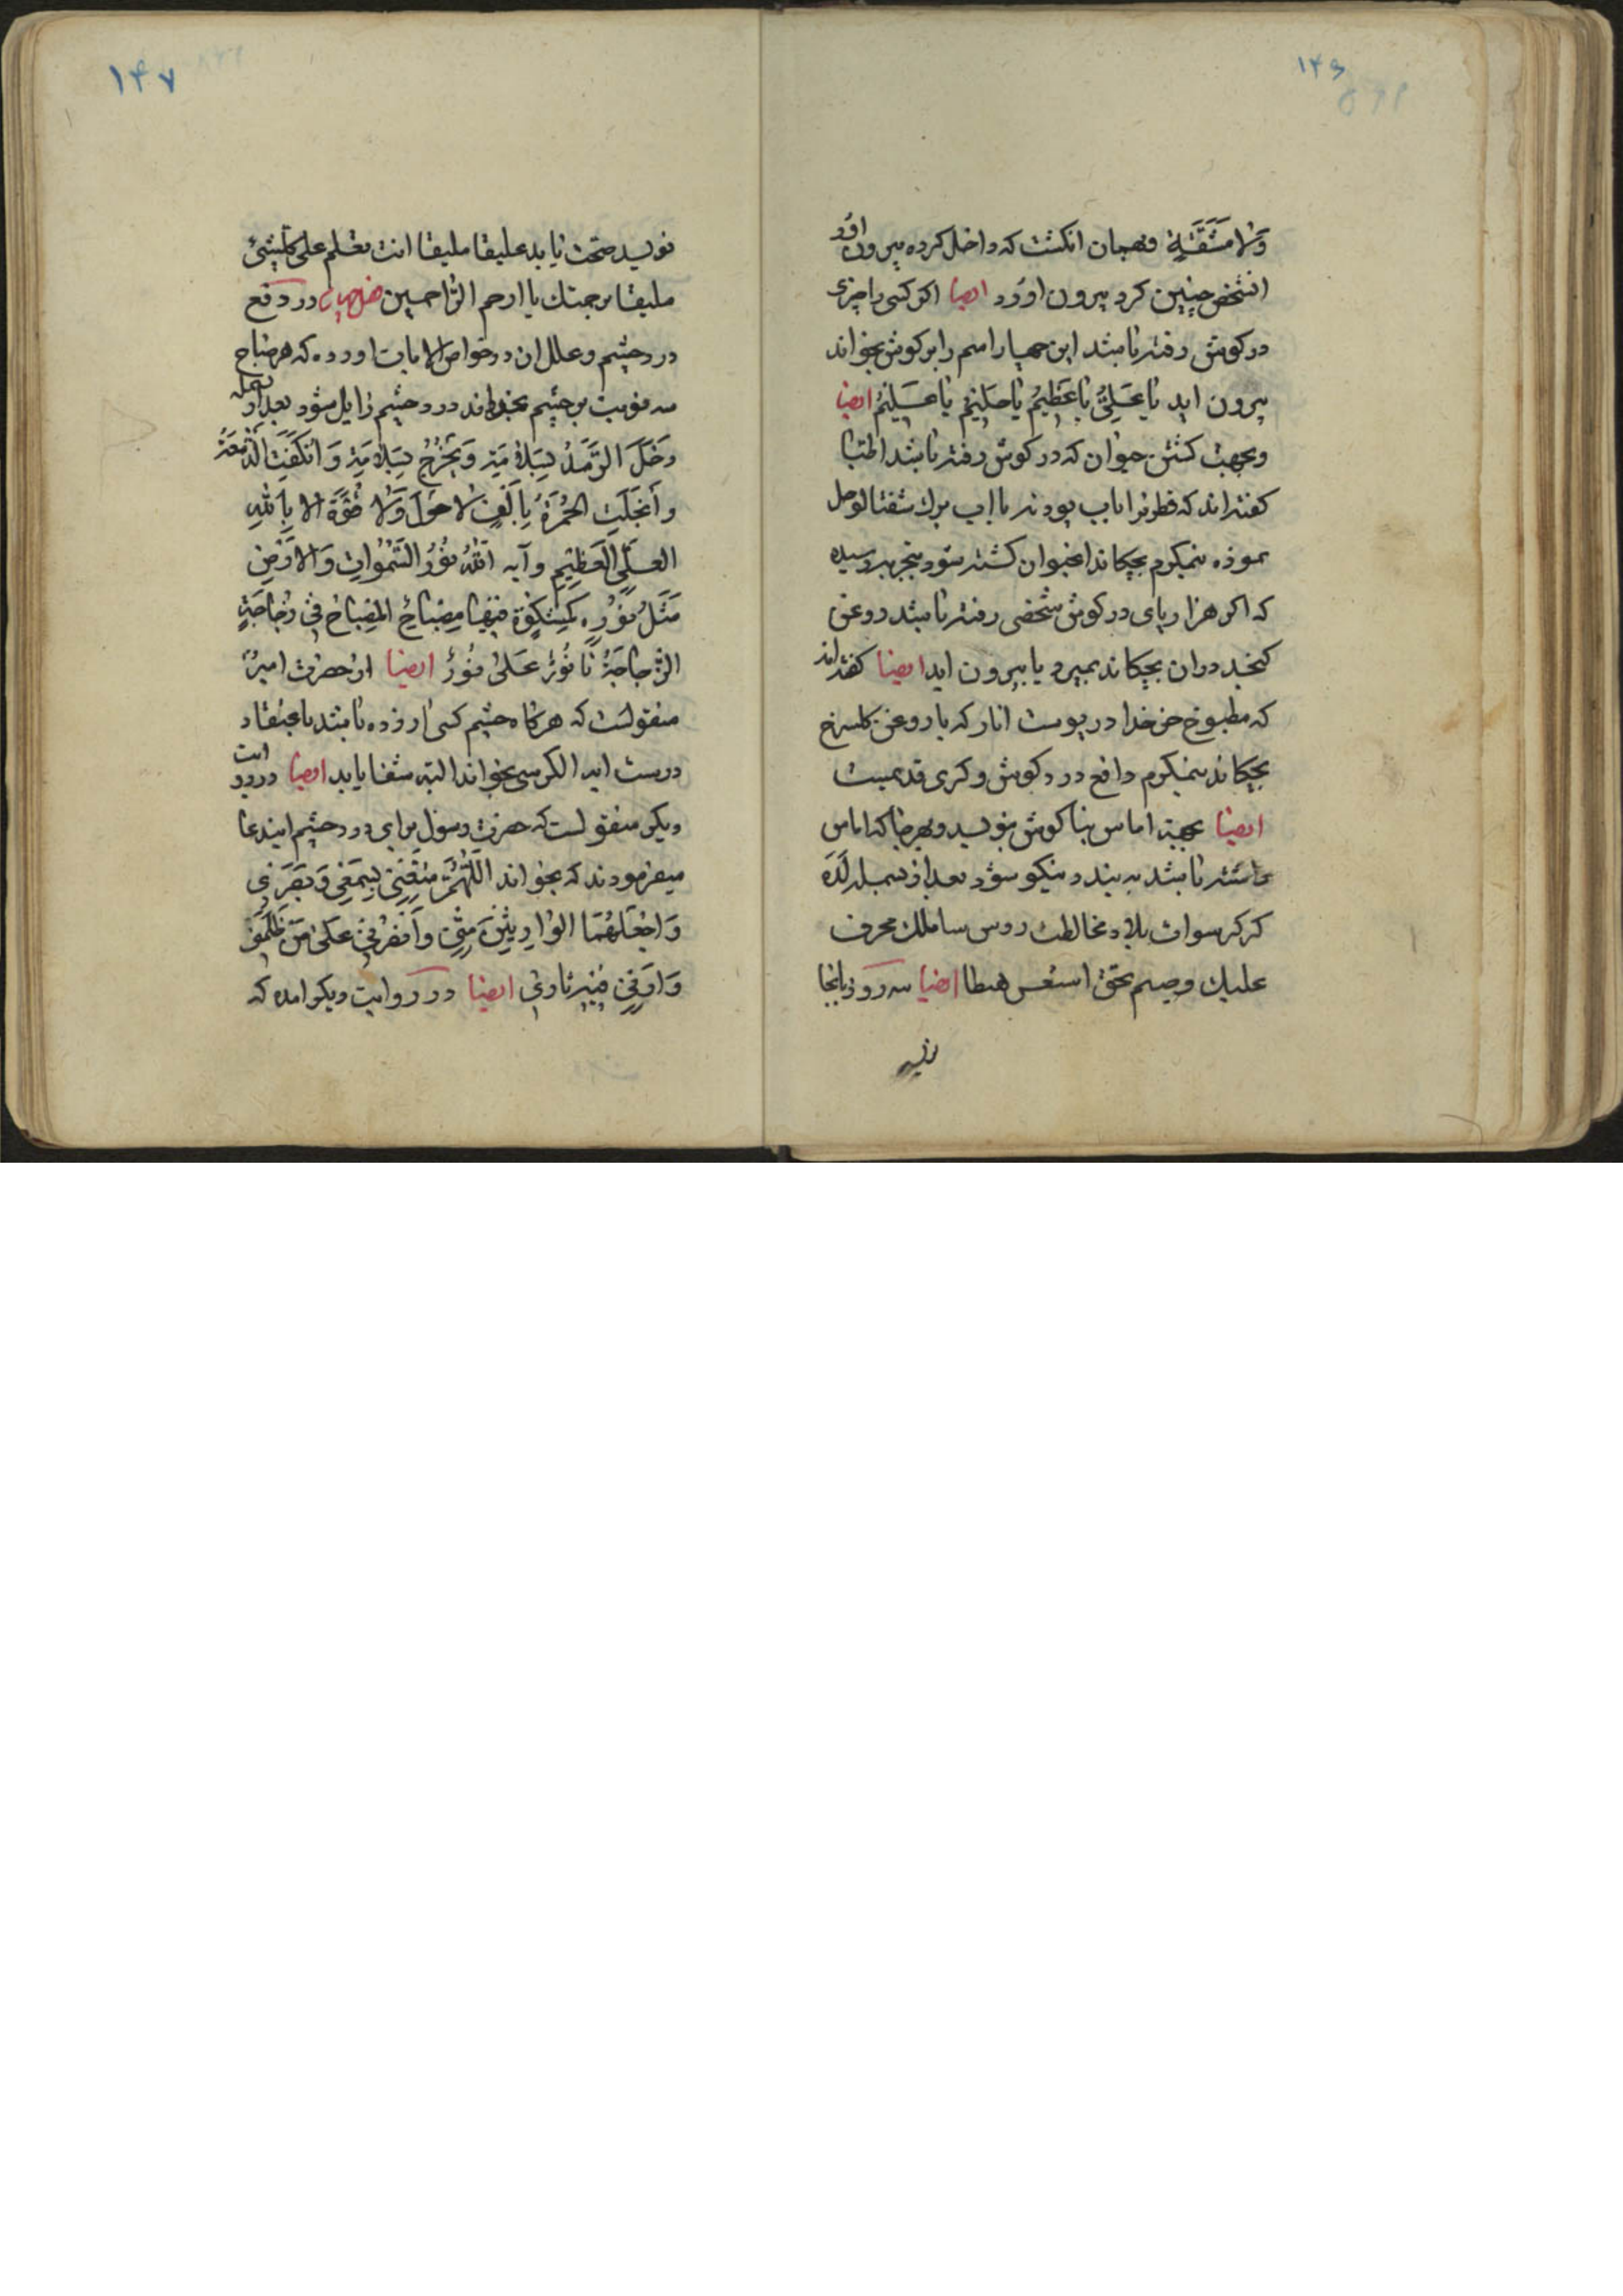 ۱۴۶
ولا مشقة و بهمان انکشت که داخل کرده بیرون اورد
انشخص چنین کرد بیرون اورد ایضا اکر کسی را چیزی
در کوش رفته باشد این چهار اسم را بر کوش بخواند
بیرون اید یا عَلِیُّ یا عَظِیمُ یا حَلِیمُ یا عَلِیمُ ایضا
وبجهت کشتن حیوان که در کوش رفته باشد اطبا
کفته اند که قطره را باب پودنه یا اب برک شفتالو حل
نموده نیمکرم بچکاند انحیوان کشته شود بتجربه رسیده
که اکر هزار پای در کوش شخصی رفته باشد روغن
کنجد دران بچکاند بمیرد یا بیرون اید ایضا کفته اند
که مطبوخ در پوست انار که با روغن کلسرخ
بچکاند نیمکرم دافع درد کوش و کری قدیمست
ایضا بجهة اماس بنا کوش بنویسد و بهر جا که اماس
داشته باشد به بندد نیکو شود بعد از بسمله
علیک بحق ایضا سه روز
۱۴۷
نویسد صحت یابد علیقا ملیقا انت تعلم علی کلشیئ
ملیقا برحمتک یا ارحم الراحمین در دفع
درد چشم و علل ان در خواص الایات اورده که هر صباح
سه نوبت بر چشم بخواند درد چشم زایل شود بعد از بسمله
دَخَلَ الرَّمَدُ بِسَلامَةٍ وَیَخرُجُ بِسَلامَةٍ وَانکَفَتِ الدَّمعَةُ
وانجَلَتِ الحُمرَةُ بِاَلفِ لاحَولَ وَلا قُوَّةَ الا بِاللهِ
العَلِیِّ العَظِیمِ وآیه اَللهُ نُورُ السَّمٰواتِ وَالاَرضِ
مَثَلُ نُورِهِ کَمِشکٰوةٍ فیها مِصباحٌ المِصباحُ فی زُجاجَةٍ
الزُّجاجَةُ تا نُورٌ عَلیٰ نُورٍ ایضا از حضرت امیر
منقولست که هرکاه چشم کسی ازرده باشد باعتقاد
درست ایة الکرسی بخواند البته شفا یابد ایضا در روایت
دیکر منقولست که حضرت رسول برای درد چشم ایندعا
میفرمودند که بخواند اَللّٰهُمَّ مَتِّعنِی بِسَمعِی وَبَصَرِی
وَاجعَلهُمَا الوارِثَینِ مِنِّی وَانصُرنِی عَلیٰ مَن ظَلَمَنِی
وَاَرِنِی فیهِ ثارِی ایضا در روایت دیکر امده که